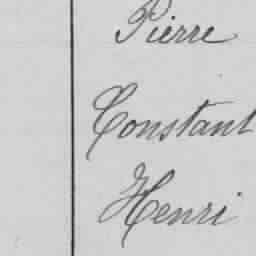 Pierre
Constant
Henri